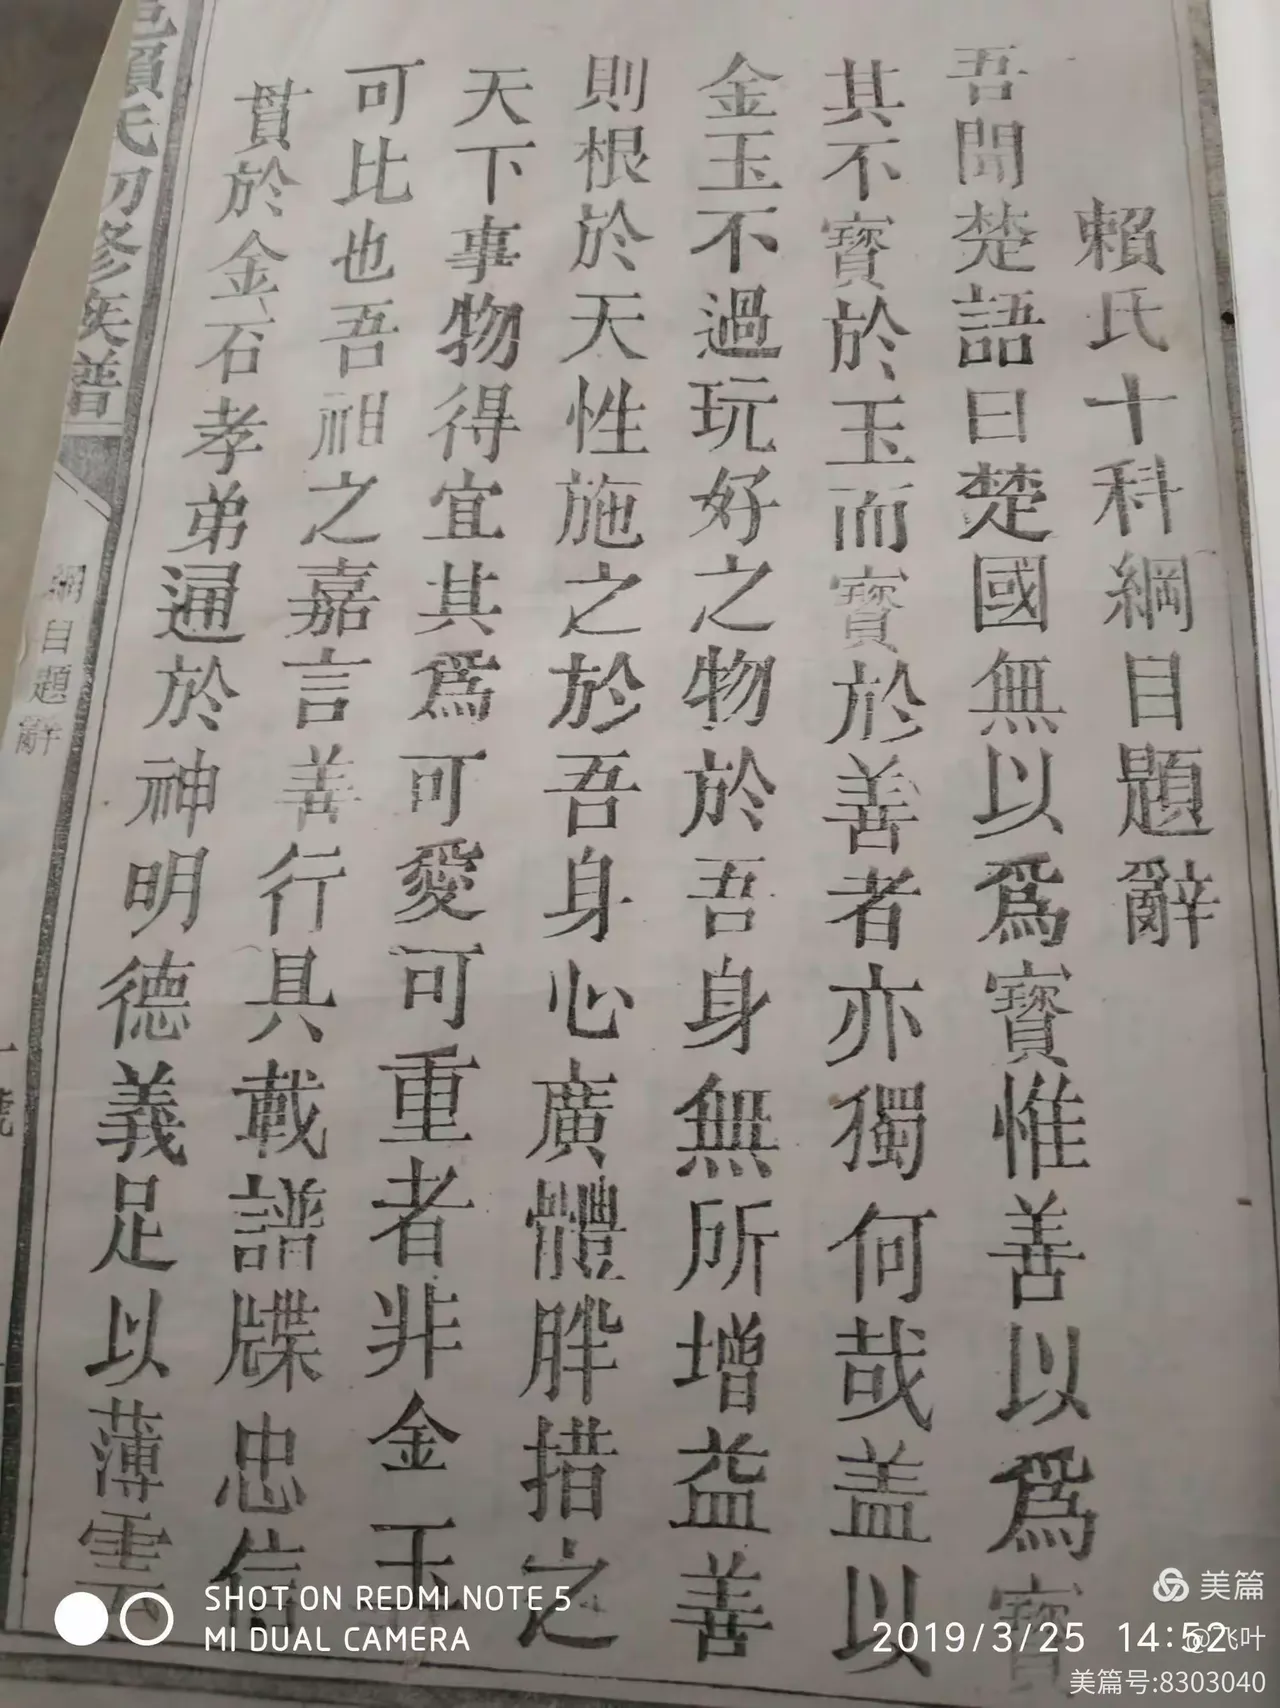 賴氏十科綱目題辭
吾聞楚語曰楚國無以爲寶惟善以爲寶
其不寶於玉而寳於善者亦獨何哉盖以
金玉不過玩好之物於吾身無所增益善
則根於天性施之於吾身心廣體胖措之
天下事物得宜其爲可愛可重者非金玉
可比也吾祖之嘉言善行具載譜牒忠信
貫於金石孝弟通於神明德義足以薄雲
賴氏初修族譜
綱目題辭
SHOT ON REDMI NOTE 5
MI DUAL CAMERA
美篇
2019/3/25 14:52
@飞叶
美篇号:8303040